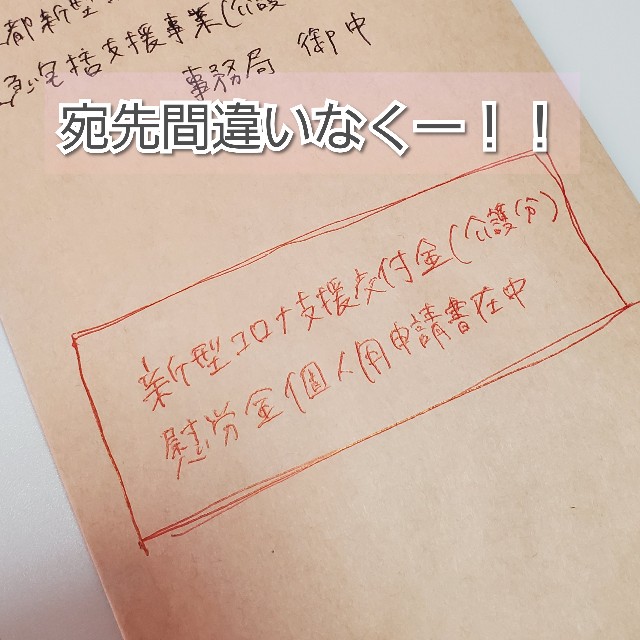 都新型
急包括支援事業(介護
事務局 御中
宛先間違いなくー！！
新型コロナ支援交付金(介護分)
慰労金個人用申請書在中